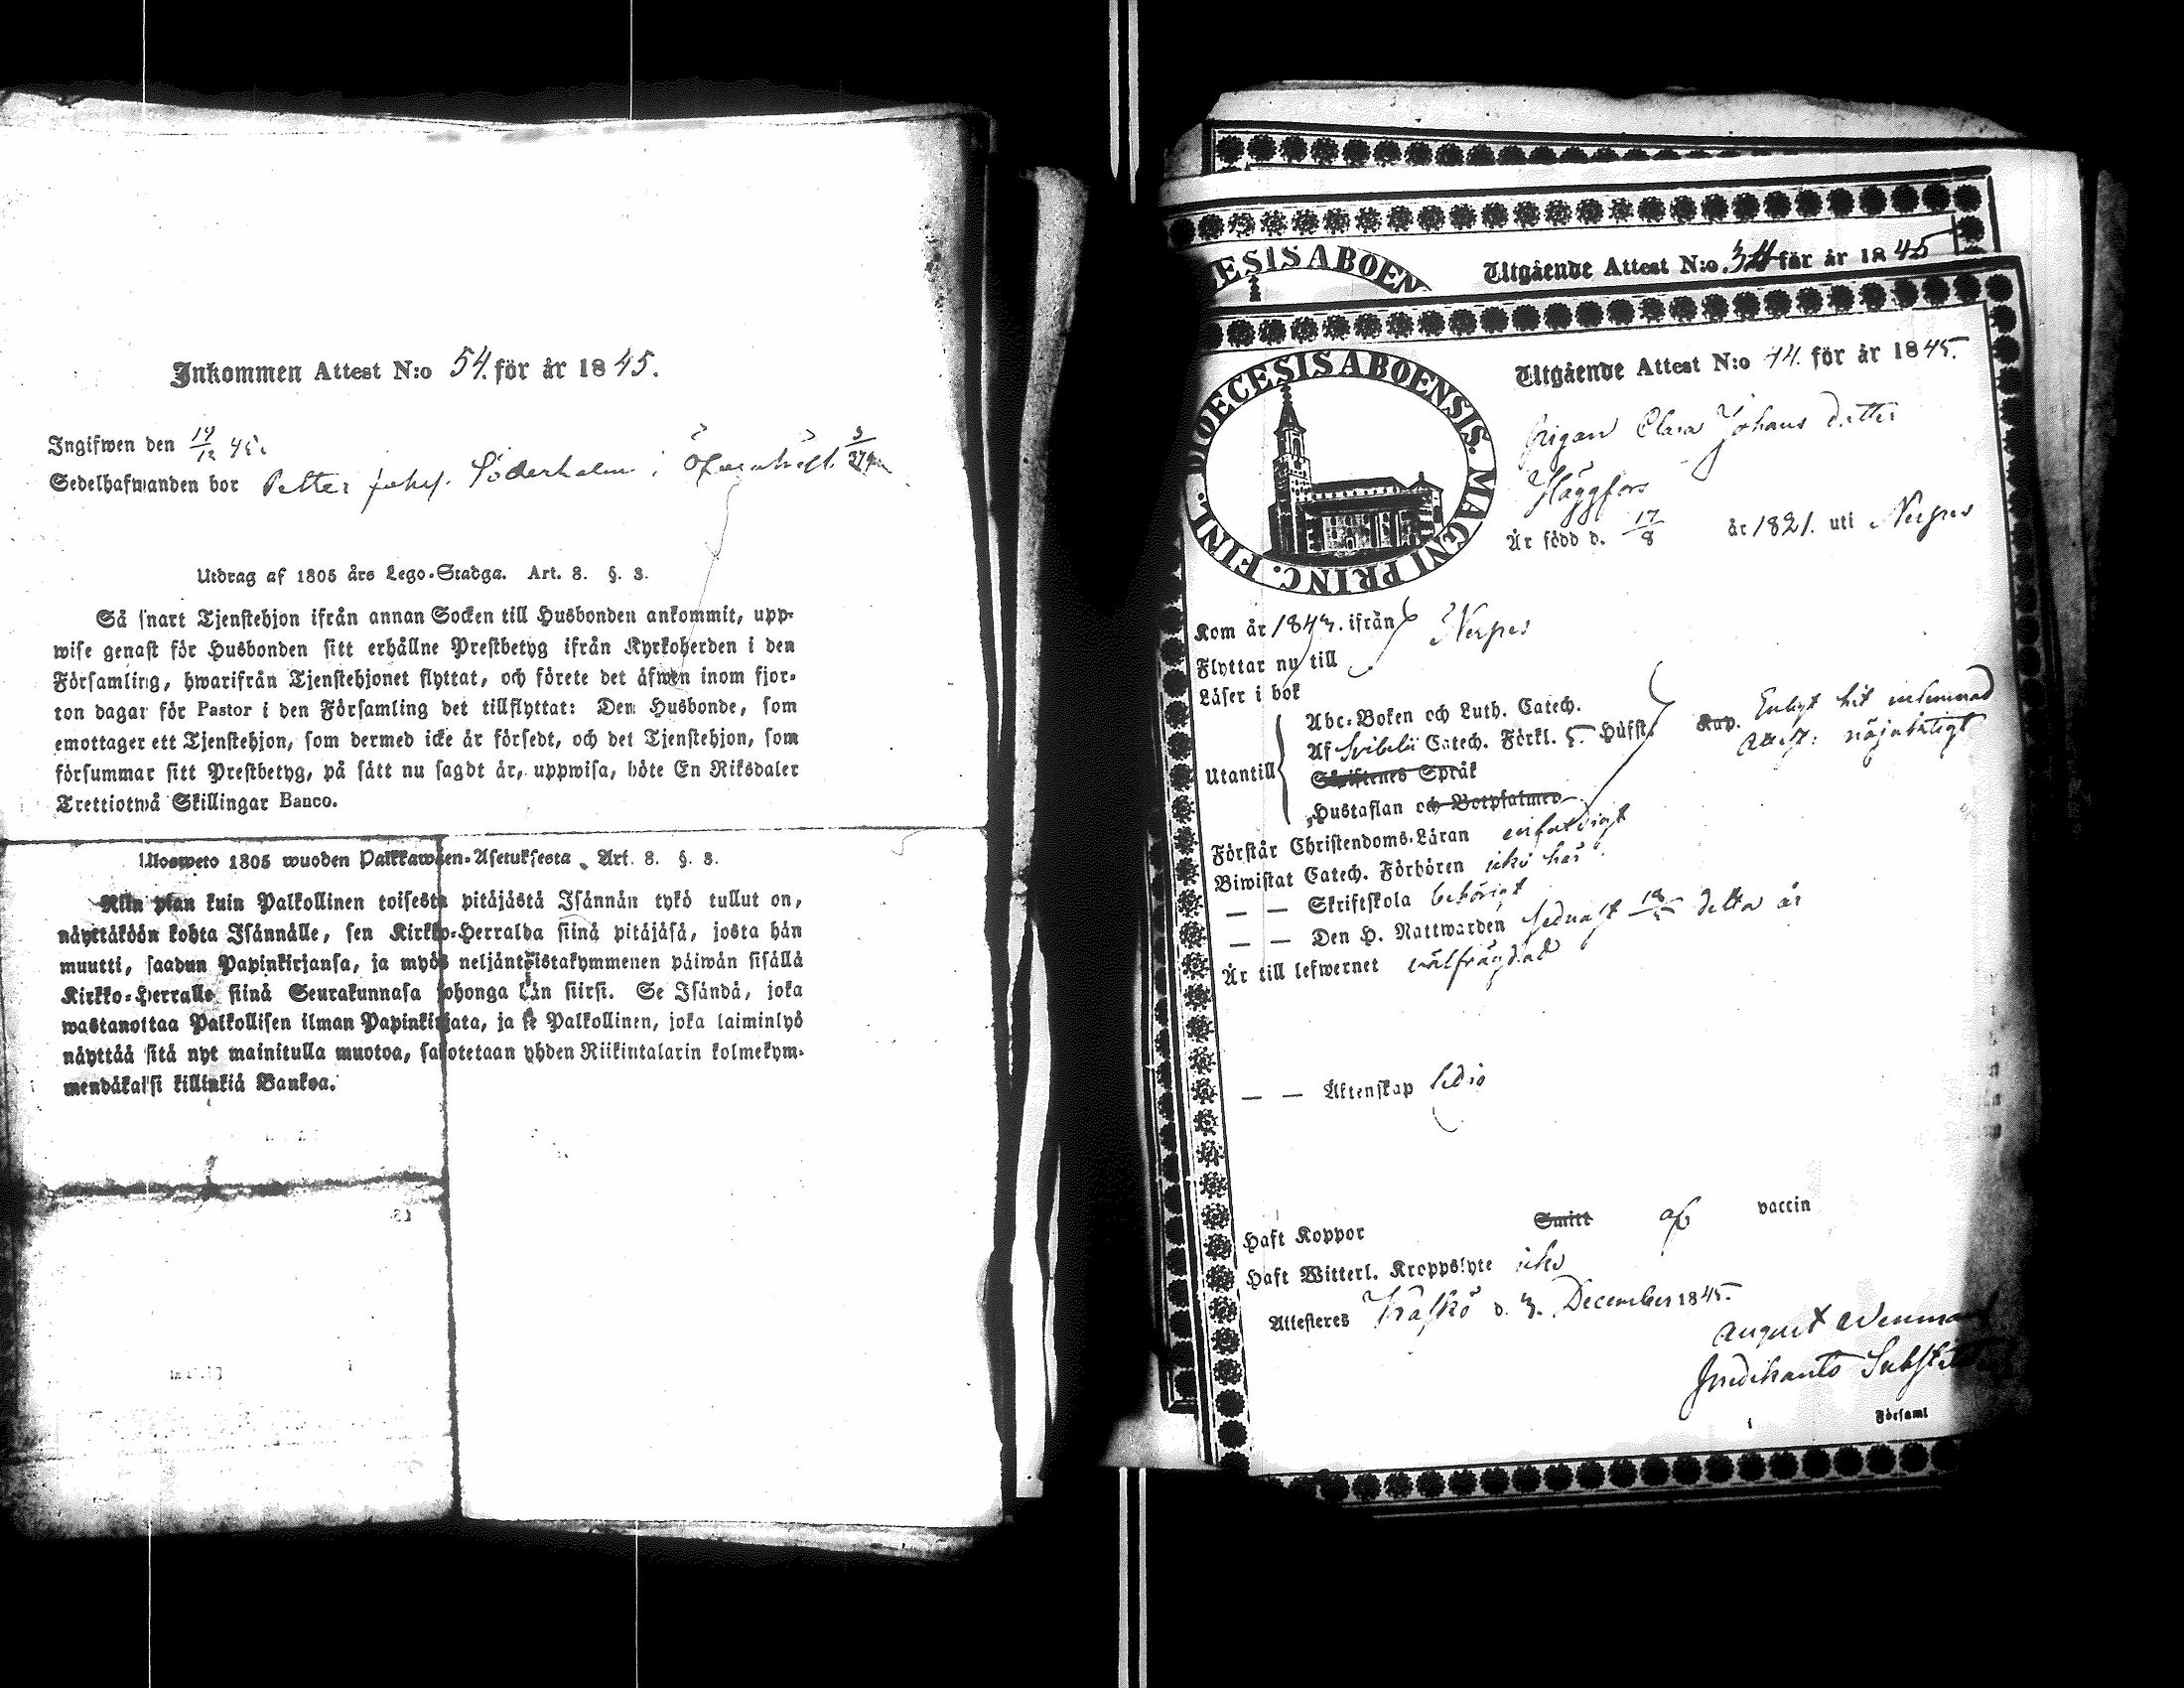 Inkommen Attest N:o 54. för år 1845.
Ingifwen den 19/12 45.
Sedelhafwanden bor Petter Johs. Söderholm i
Utdrag af 1805 års Lego-Stadga. Art. 8. §. 3.
Så snart Tjenstehjon ifrån annan Socken till Husbonden ankommit, upp-
wise genast för Husbonden sitt erhållne Prestbetyg ifrån Kyrkoherden i den
Församling, hwarifrån Tjenstehjonet flyttat, och förete det äfwen inom fjor-
ton dagar för Pastor i den Församling det tillflyttat: Den Husbonde, som
emottager ett Tjenstehjon, som dermed icke är försedt, och det Tjenstehjon, som
försummar sitt Prestbetyg, på sätt nu sagdt är, uppwisa, böte En Riksdaler
Trettiotwå Skillingar Banco.
Ulosweto 1805 wuoden Palkkawäen-Asetuksesta. Art. 8. §. 3.
Niin pian kuin Palkollinen toisesta pitäjästä Isännän tykö tullut on,
näyttäköön kohta Isännälle, sen Kirkko-Herralda siinä pitäjäsä, josta hän
muutti, saadun Papinkirjansa, ja myös neljäntoistakymmenen päiwän sisällä
Kirkko-Herralle siinä Seurakunnasa johonga hän siirsi. Se Isändä, joka
wastanottaa Palkollisen ilman Papinkirjata, ja se Palkollinen, joka laiminlyö
näyttää sitä nyt mainitulla muotoa, sakotetaan yhden Riikintalarin kolmekym-
mendäkaksi killinkiä Bankoa.
ESIS ABOEN
Utgående Attest N:o 34 för år 1845
DIOECESIS ABOENSIS. MAGNI PRINC. FINL.
Utgående Attest N:o 44. för år 1845.
Pigan Clara Johans dotter
Häggfors
Är född d. 17/8 år 1821. uti Nerpes
Kom år 1843. ifrån
Flyttar nu till Nerpes
Läser i bok
Utantill
Abc-Boken och Luth. Catech.
Af Svibelii Catech. Förkl. 5 Hufst. Kap. Enligt hit inlemnad
Attest: nöjaktigt
Skriftenes Språk
Hustaflan och Botpsalmer
Förstår Christendoms-Läran enfaldigt
Biwistat Catech. Förhören icke här
— — Skriftskola behörigt
— — Den H. Nattwarden sednast detta år
Är till lefwernet wälfrägdad
— — Äktenskap ledig
Haft Koppor Smitt af vaccin
Haft Witterl. Kroppslyte icke
Attesteres Kaskö d. 3. December 1845.
August
Predikants
i Församl